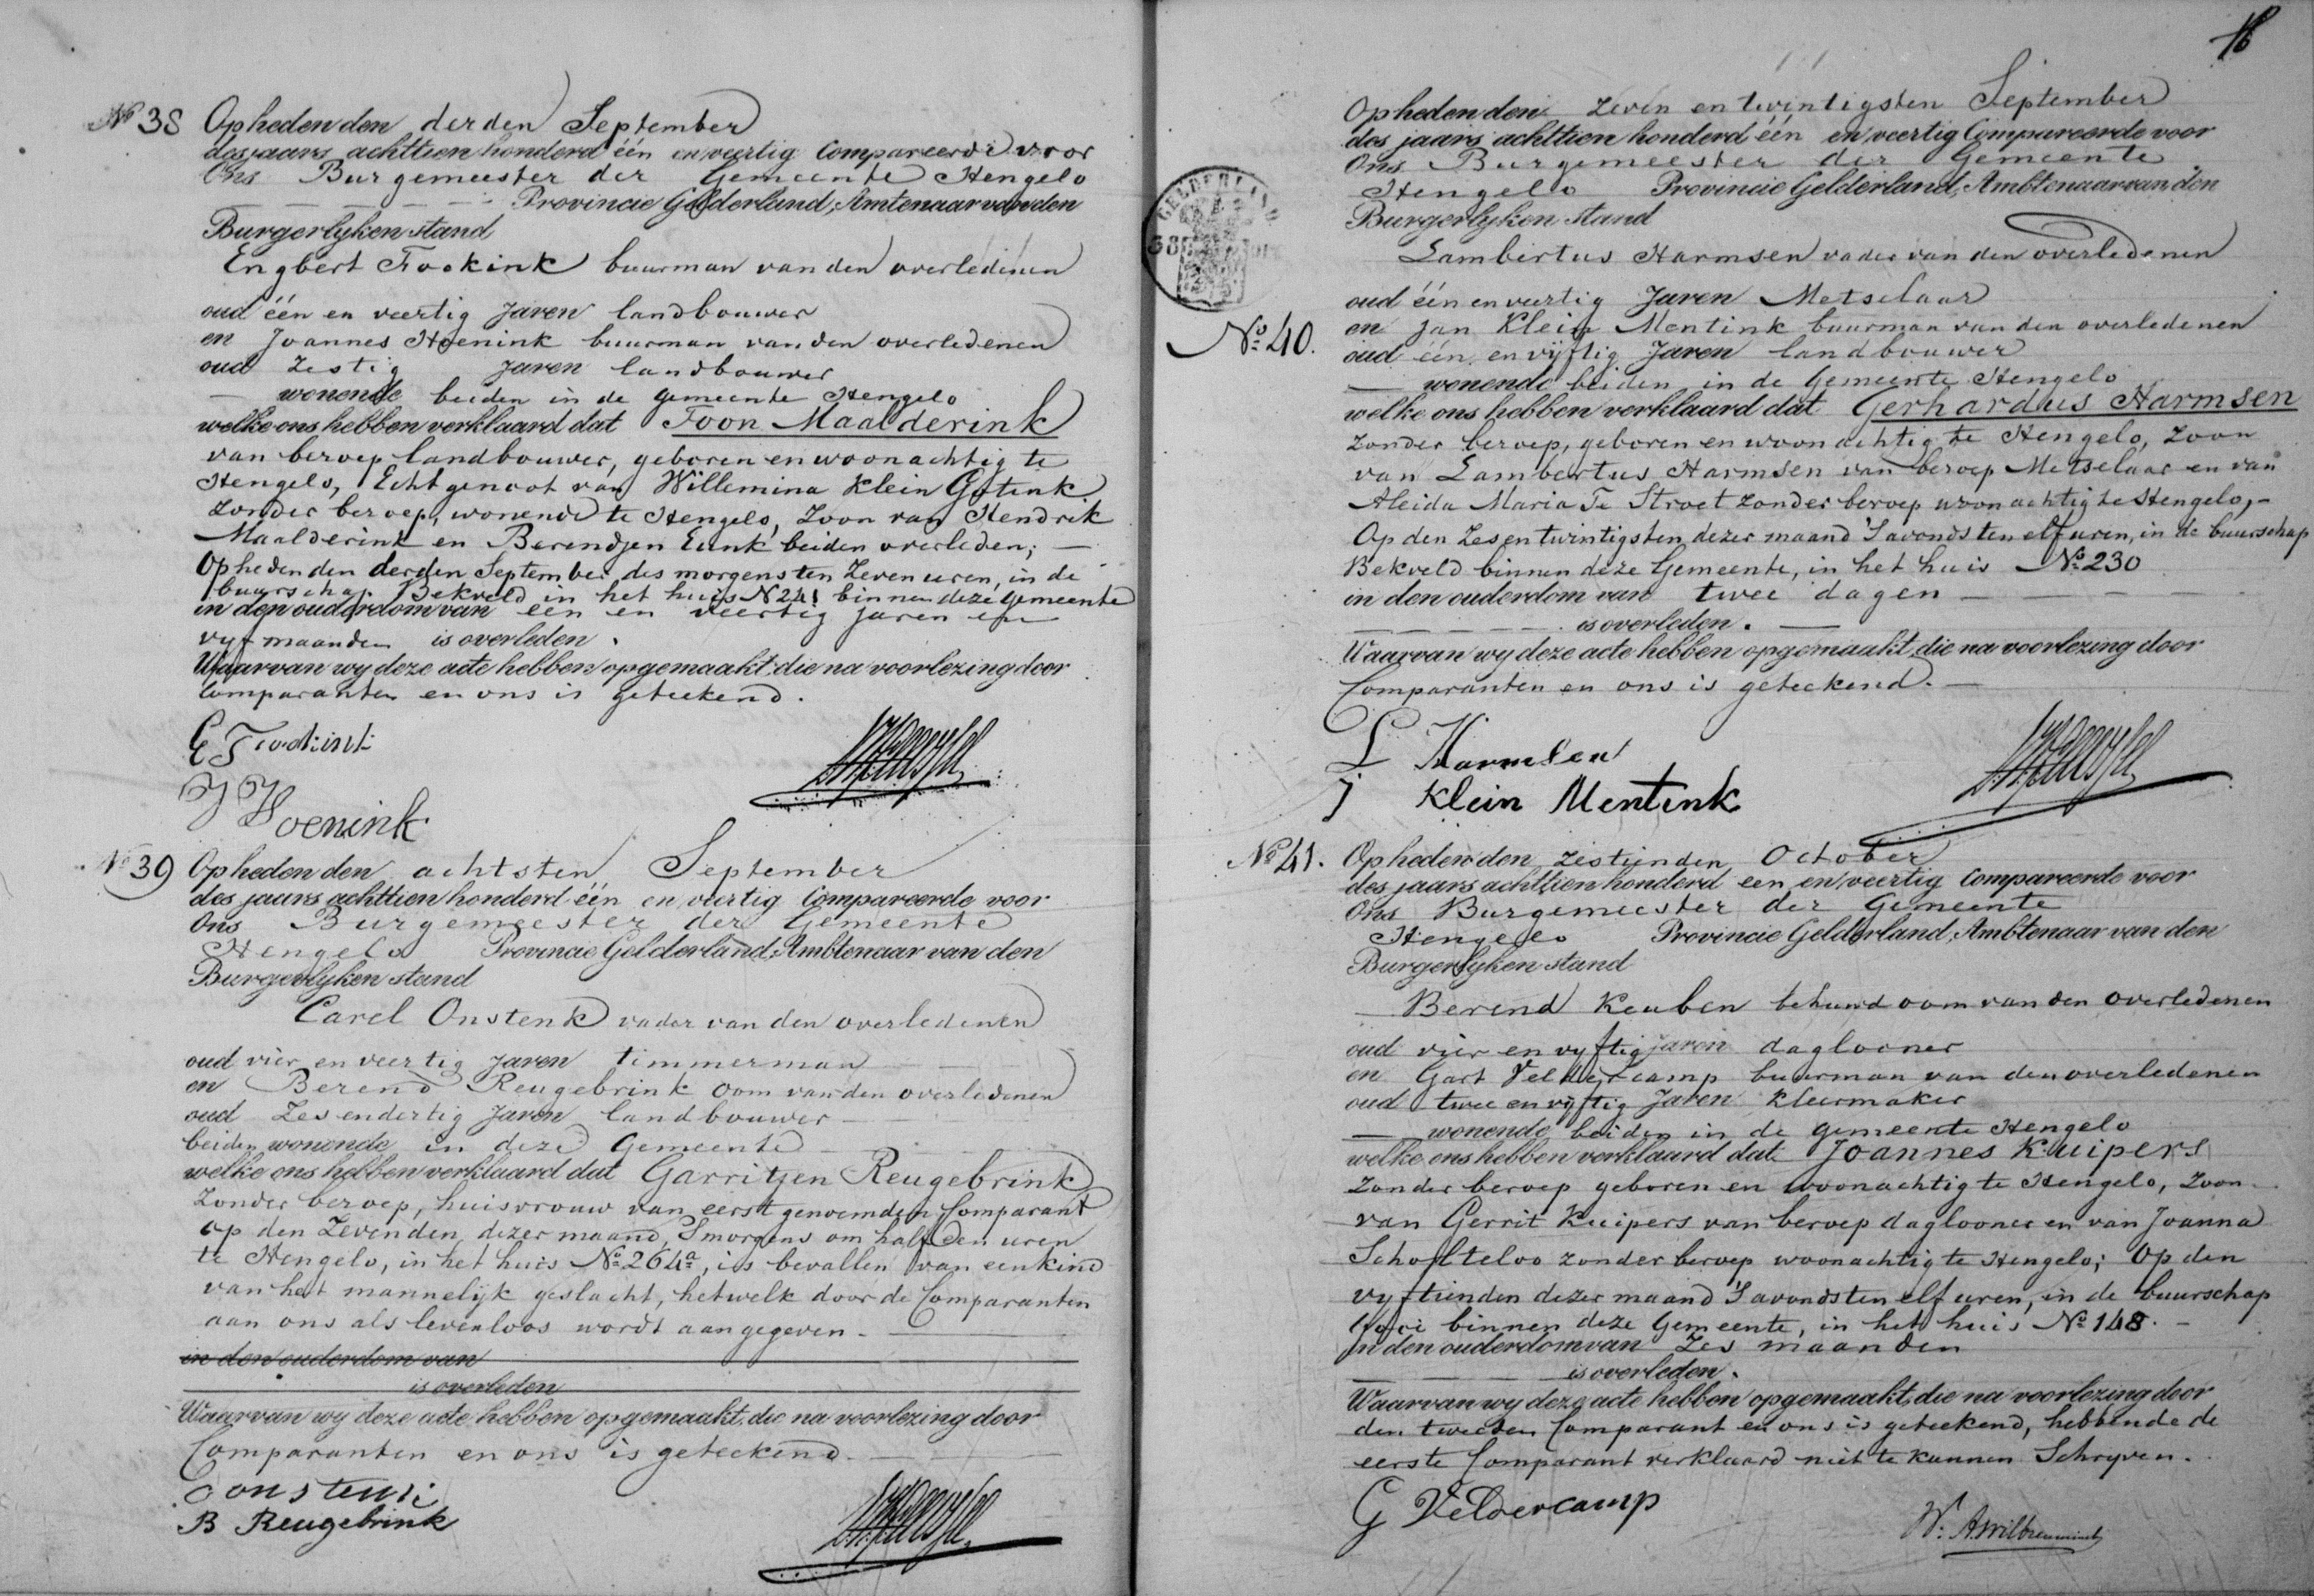 Nº 38 Op heden den derden September
des jaars achttien honderd één en veertig Compareerde voor
Ons Burgemeester der Gemeente Hengelo
Provincie Gelderland, Amtenaar van den
Burgerlyken stand
Engbert Fookink buurman van den overledenen
oud één en veertig Jaren landbouwer
en Joannes Hoenink buurman van den overledenen
oud Zestig Jaren landbouwer
wonende beiden in de gemeente Hengelo
welke ons hebben verklaard dat Toon Maalderink
van beroep landbouwer, geboren en woonachtig te
Hengelo, Echtgenoot van Willemina Klein Gotink
Zonder beroep, wonende te Hengelo, Zoon van Hendrik
Maalderink en Berendjen Eunk beiden overleden;
Op heden den derden September des morgens ten Zeven uren, in de
buurschap Bekveld in het huis N 241 binnen deze gemeente
in den ouderdom van een en veertig jaren en
vyf maanden is overleden.
Waarvan wy deze acte hebben opgemaakt, die na voorlezing door
Comparanten en ons is geteekend.
E Fookink
J Hoenink
Nº 39 Op heden den achtsten September
des jaars achttien honderd één en veertig Compareerde voor
Ons Burgemeester der Gemeente
Hengelo Provincie Gelderland, Ambtenaar van den
Burgerlyken stand
Carel Onstenk vader van den overledenen
oud vier en veertig Jaren timmerman
en Berend Reugebrink oom van den overledenen
oud Zes en dertig Jaren landbouwer
beiden wonende in deze Gemeente
welke ons hebben verklaard dat Garritjen Reugebrink
Zonder beroep, huisvrouw van eerst genoemden Comparant
op den Zevenden dezer maand, Smorgens om half Een uren
te Hengelo, in het huis Nº 264a, is bevallen van een kind
van het mannelijk geslacht, hetwelk door de Comparanten
aan ons als levenloos wordt aangegeven.
in den ouderdom van
is overleden
Waarvan wy deze acte hebben opgemaakt, die na voorlezing door
Comparanten en ons is geteekend.
C onstenk
B Reugebrink
16
GELDERLAND
Nº 40. Op heden den Zeven en twintigsten September
des jaars achttien honderd één en veertig Compareerde voor
Ons Burgemeester der Gemeente
Hengelo Provincie Gelderland, Ambtenaar van den
Burgerlyken stand
Lambertus Harmsen vader van den overledenen
oud één en veertig Jaren Metselaar
en Jan Klein Mentink buurman van den overledenen
oud één en vijftig Jaren landbouwer
wonende beiden in de Gemeente Hengelo
welke ons hebben verklaard dat Gerhardus Harmsen
Zonder beroep, geboren en woonachtig te Hengelo, Zoon
van Lambertus Harmsen van beroep Metselaar en van
Aleida Maria Te Stroet Zonder beroep woonachtig te Hengelo,
Op den Zes en twintigsten dezer maand 'S avonds ten elf uren, in de buurschap
Bekveld binnen deze Gemeente, in het huis Nº 230
in den ouderdom van twee dagen
is overleden.
Waarvan wy deze acte hebben opgemaakt, die na voorlezing door
Comparanten en ons is geteekend.
L Harmsen
J Klein Mentink
Nº 41. Op heden den zestienden October
des jaars achttien honderd een en veertig Compareerde voor
Ons Burgemeester der Gemeente
Hengelo Provincie Gelderland, Ambtenaar van den
Burgerlyken stand
Berend Keuben behuwd oom van den overledenen
oud vier en vyftig jaren daglooner
en Gart Veldercamp buurman van den overledenen
oud twee en vijftig Jaren kleermaker
wonende beiden in de gemeente Hengelo
welke ons hebben verklaard dat Joannes Kuipers
Zonder beroep geboren en woonachtig te Hengelo, Zoon
van Gerrit Kuipers van beroep daglooner en van Joanna
Scholteloo zonder beroep woonachtig te Hengelo; Op den
vyftienden dezer maand 'S avonds ten elf uren, in de buurschap
Gooi binnen deze Gemeente, in het huis Nº 148.
In den ouderdom van Zes maanden
is overleden.
Waarvan wy deze acte hebben opgemaakt, die na voorlezing door
den tweeden Comparant en ons is geteekend, hebbende de
eerste Comparant verklaard niet te kunnen Schryven.
G Veldercamp